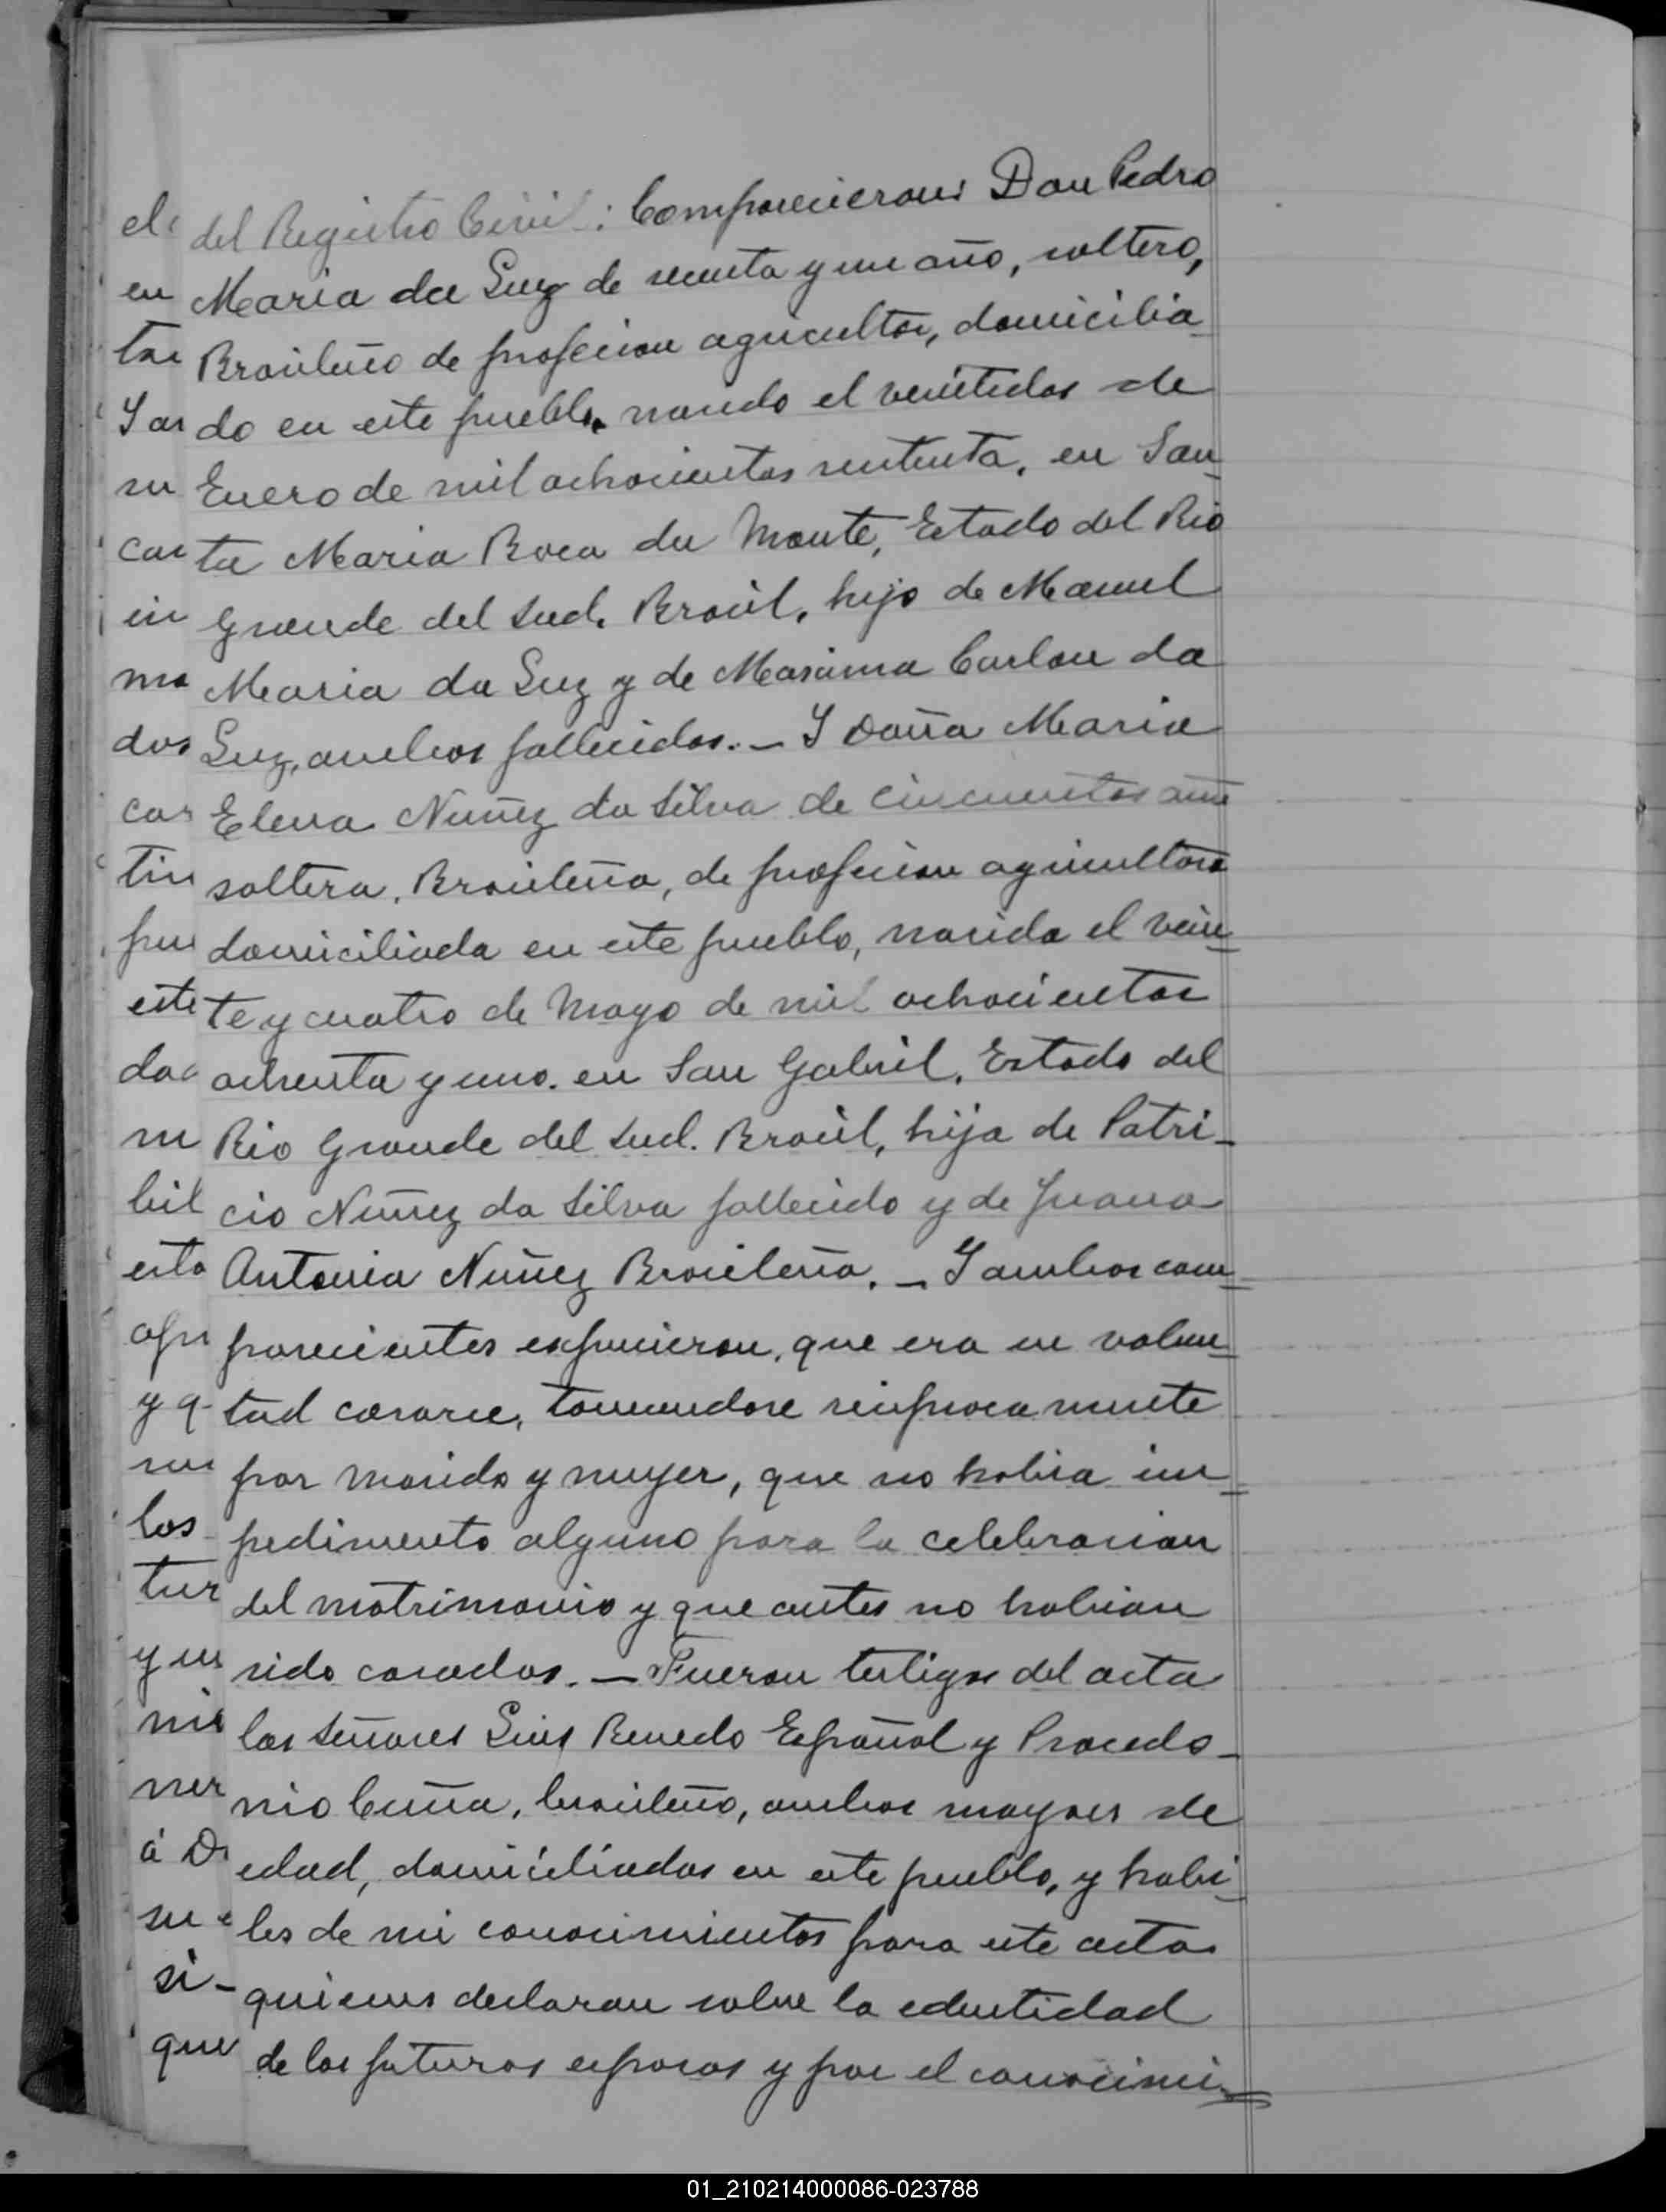 el del Registro Civil: Comparecieron: Don Pedro
en Maria da Luz de sesenta y un año, soltero,
tar Brasileño de profecion agricultor, domicilia-
Y as do en este pueblo, nacido el veintidos de
su Enero de mil ochocientos setenta, en San-
cas ta Maria Boca du Monte, Estado del Rio
in Grande del Sud. Brasil, hijo de Manuel
ma Maria da Luz y de Maxima Carlou da
dos Luz, ambos fallecidos.- Y Doña Maria
cas Elena Nuñez da Silva de cincuentas años
tin soltera, Brasileña, de profecion agricultora
pue domiciliada en este pueblo, nacida el vein-
este te y cuatro de Mayo de mil ochocientos
dac ochenta y uno. en San Gabriel, Estado del
su Rio Grande del Sud. Brasil, hija de Patri-
bil cio Nuñez da Silva fallecido y de Juana
esta Antonia Nuñez Brasileña.- Y ambos com-
opu parecientes expusieron, que era su volun-
y q tud casarse, tomandose reciprocamente
su por marido y muyer, que no habia im-
los pedimento alguno para la celebracion
tur del matrimonio y que antes no habian
y us sido casados.- Fueron testigos del acta
mis los señores Luis Benedo Español y Procedo-
ner nio Cuña, brasileño, ambos mayores de
á D edad, domiciliados en este pueblo, y habi-
su e les de mi conocimientos para este acto
si- quienes declaran sobre la edentidad
que de los futuros esposos y por el conocimi-
01_210214000086-023788